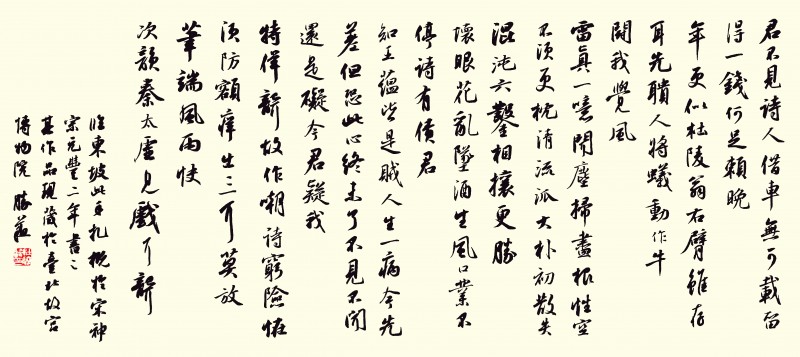 君不見詩人借車無可載留
得一錢何足賴晚
年更似杜陵翁右臂雖存
耳先聵人將蟻動作牛
鬭我覺風
雷真一噫聞塵掃盡根性空
不須更枕清流派大朴初散失
混沌六鑿相攘更勝
壞眼花亂墜酒生風口業不
停詩有債君
知五蘊皆是賊人生一病今先
差但恐此心終未了不見不聞
還是礙今君疑我
特佯聾故作嘲詩窮險怪
須防額痒生三耳莫放
筆端風雨快
次韻秦太虛見戲耳聾
臨東坡此手札概於宋神
宗元豐二年書之
其作品現藏於臺北故宮
博物院 勝